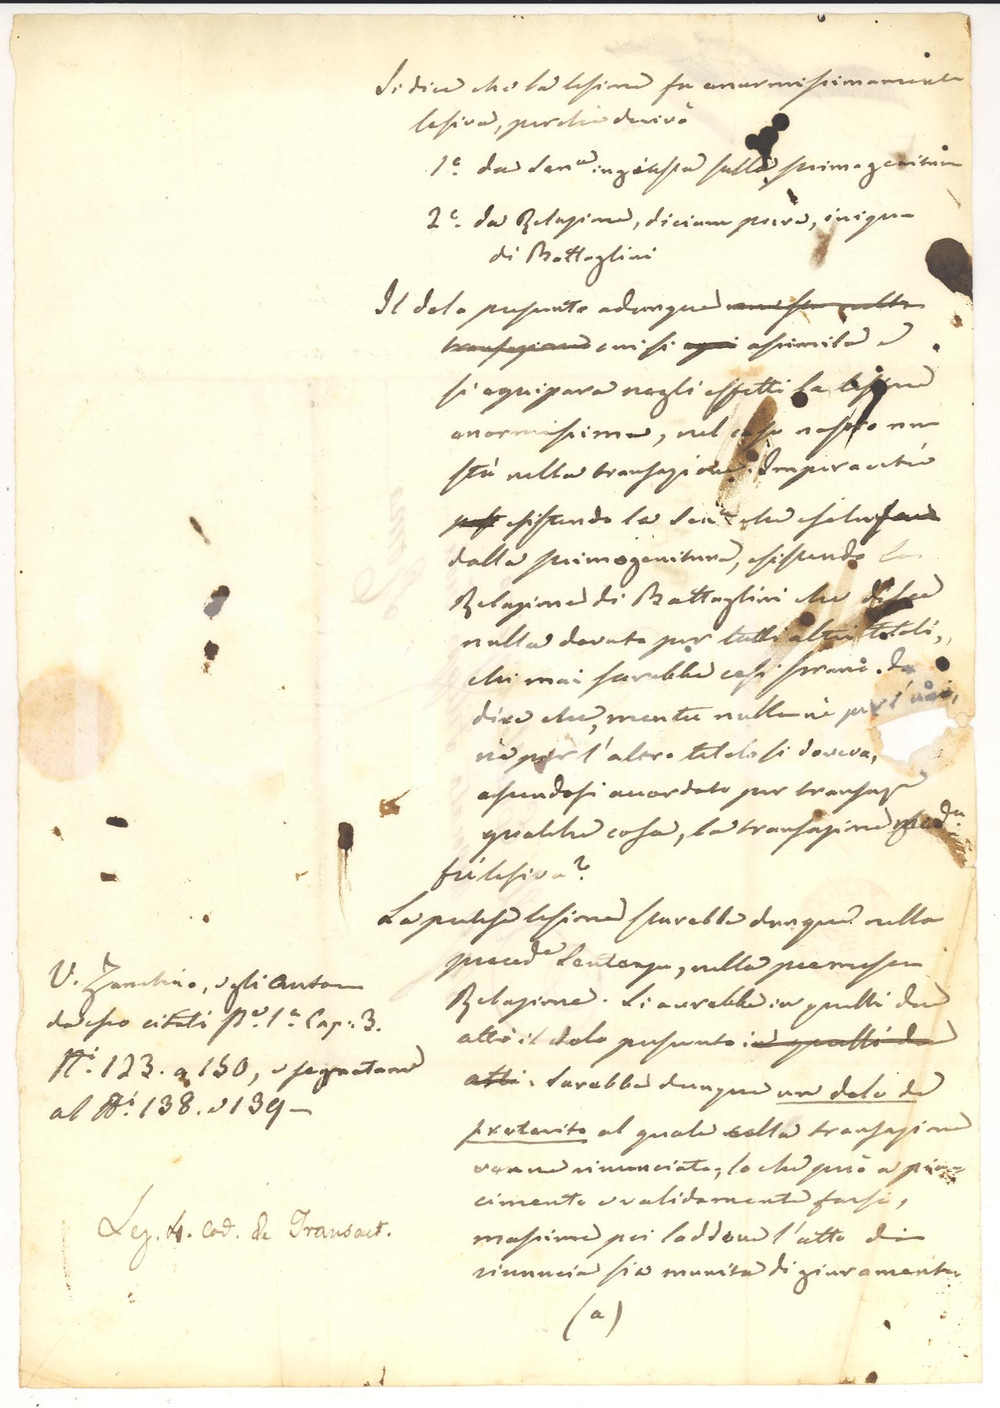 Si dice che la lesione fu enormissimamente
lesiva, perchè derivò
1º. da Senª ingiusta sulla primogenitura
2º. da Relazione, diciam pure, iniqua
di Battaglini
Il dolo presunto adunque
cui si assimila e
si equipara negli effetti la lesione
enormissima, nel caso nostro non
stà nella transazione. Imperocchè
esistendo la Senª che esclu
dalla primogenitura, esistendo la
Relazione di Battaglini che disse
nulla dovuto per tutti altri titoli,
chi mai sarebbe così strano da
dire che, mentre nulla nè per l'uno,
nè per l'altro titolo si doveva,
essendosi accordato per transaze
qualche cosa, la transazione med.ª
fù lesiva?
La pretesa lesione starebbe dunque nella
preced.e Sentenza, nella premessa
Relazione. Si avrebbe in quelli due
atti il dolo presunto: in quelli due
atti. Sarebbe dunque un dolo de
preterito al quale colla transazione
venne rinunciato, lo che può a pia-
cimento e validamente farsi,
massime poi laddove l'atto di
rinuncia sia munita di giuramento
(a)
V. Zanchio, e gli autori
da esso citati Pe. 1ª Cap: 3.
Ni. 123. a 150, e segnatame
al Ni. 138. e 139 –
Leg. 4. Cod. de Transact.